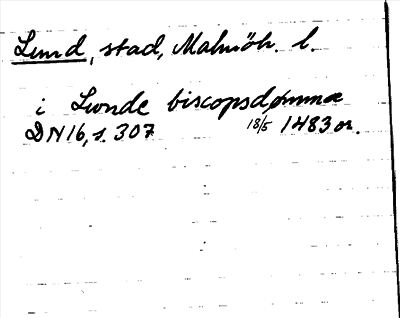 Lund, stad, Malmöh. l.
i Lunde biscopsdømme
DN16, s. 307 18/5 1483 or.